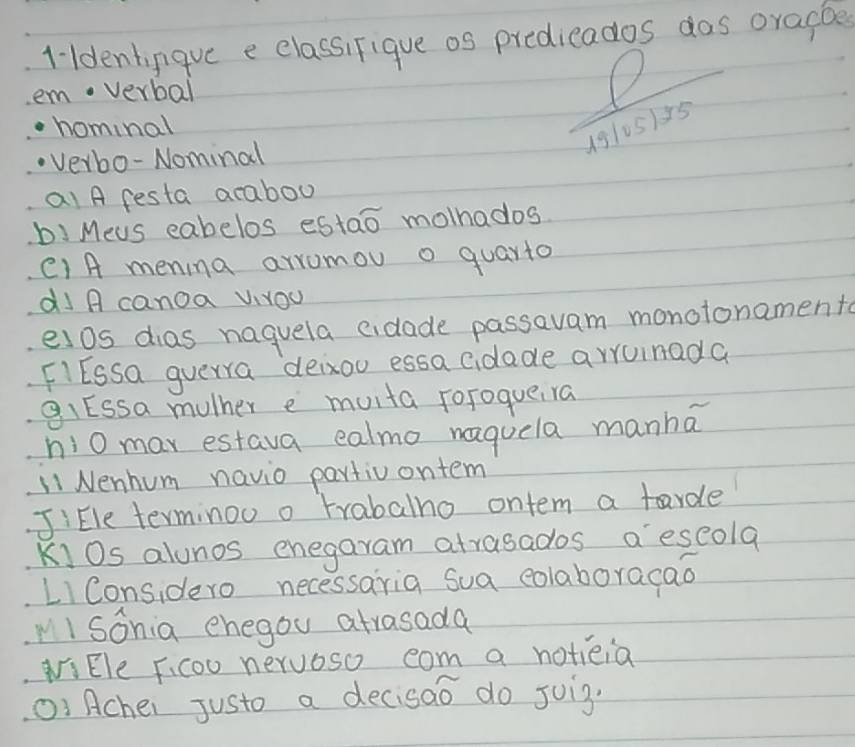 1-Identifique e classifique os predicados das orações
em • verbal
• nominal
• verbo-Nominal
19/05/25
a) A festa acabou
b) Meus cabelos estão molhados
c) A menina arrumou o quarto
d) A canoa virou
e) Os dias naquela cidade passavam monotonamente
F) Essa guerra deixou essa cidade arruinada
g) Essa mulher e muita fofoqueira
h) O mar estava calmo naquela manhã
i) Nenhum navio partiu ontem
J) Ele terminou o trabalho ontem a tarde
K) Os alunos chegaram atrasados a escola
L) Considero necessária sua colaboração
M) Sônia chegou atrasada
N) Ele Ficou nervoso com a notícia
O) Achei justo a decisão do juiz.